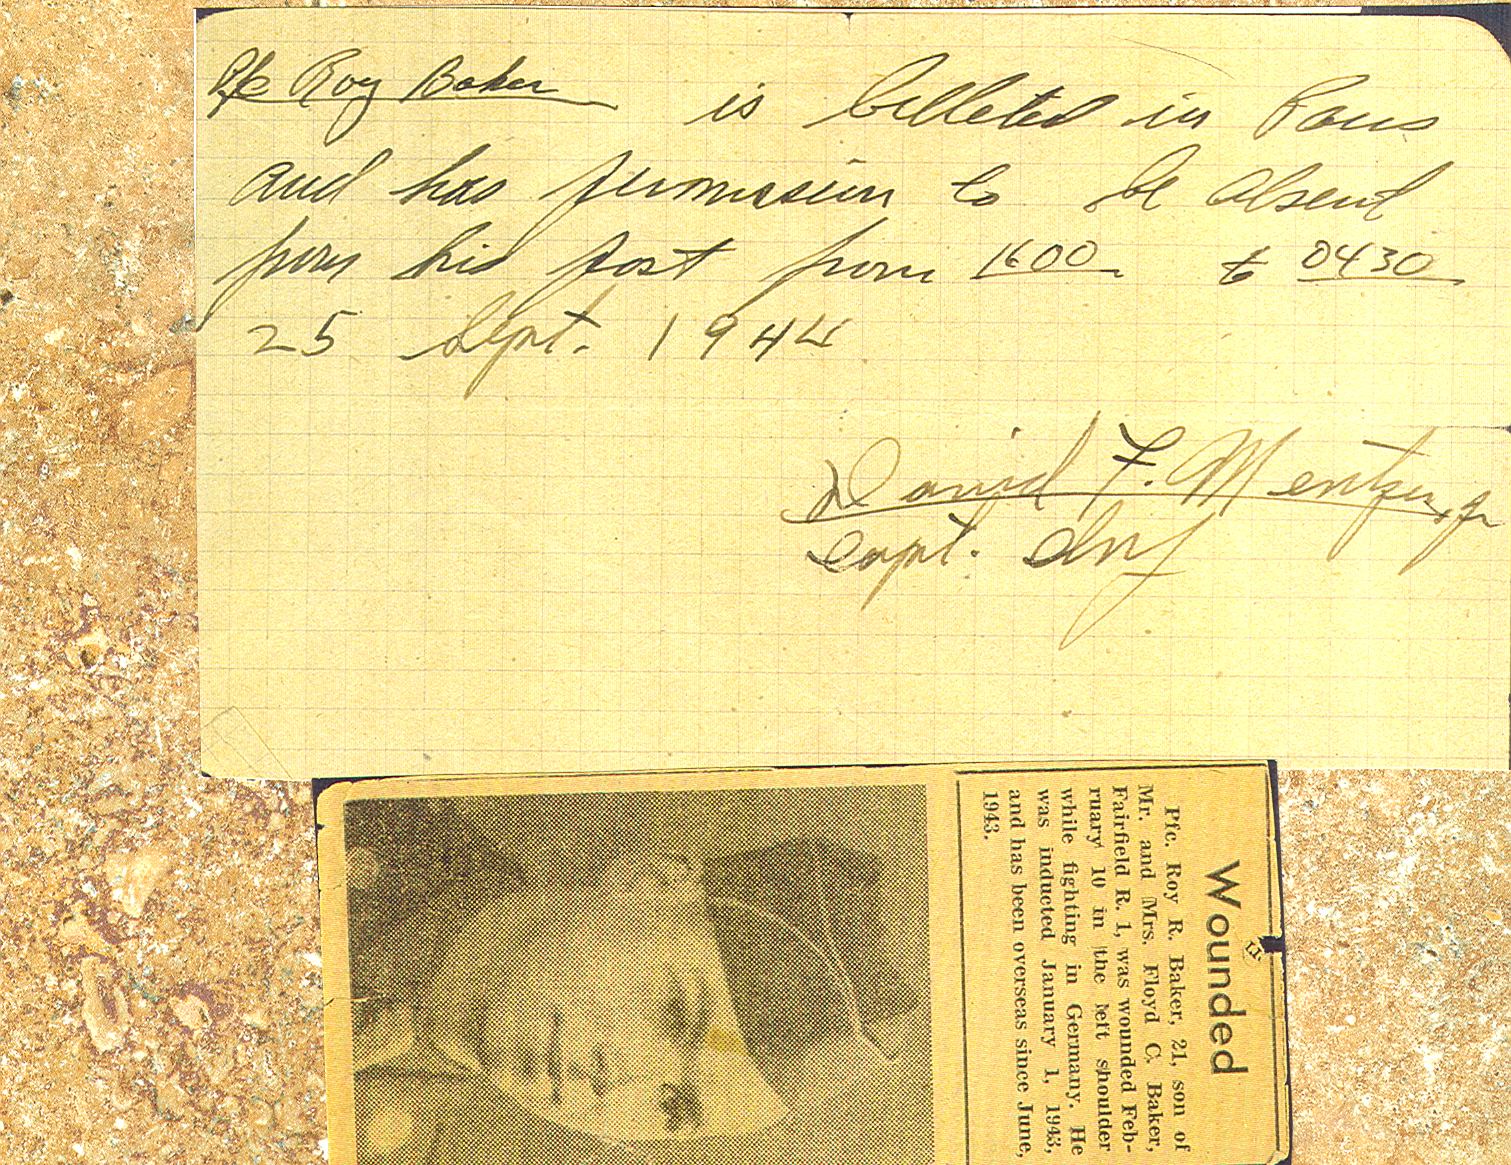 Pfc Roy Baker is billeted in Paris
and has permission to be absent
from his post from 1600 to 0430
25 Sept. 1944
David F. Mentzer, Jr
Capt. Inf
Wounded
Pfc. Roy R. Baker, 21, son of
Mr. and Mrs. Floyd C. Baker,
Fairfield R. 1, was wounded Feb-
ruary 10 in the left shoulder
while fighting in Germany. He
was inducted January 1, 1943,
and has been overseas since June,
1943.